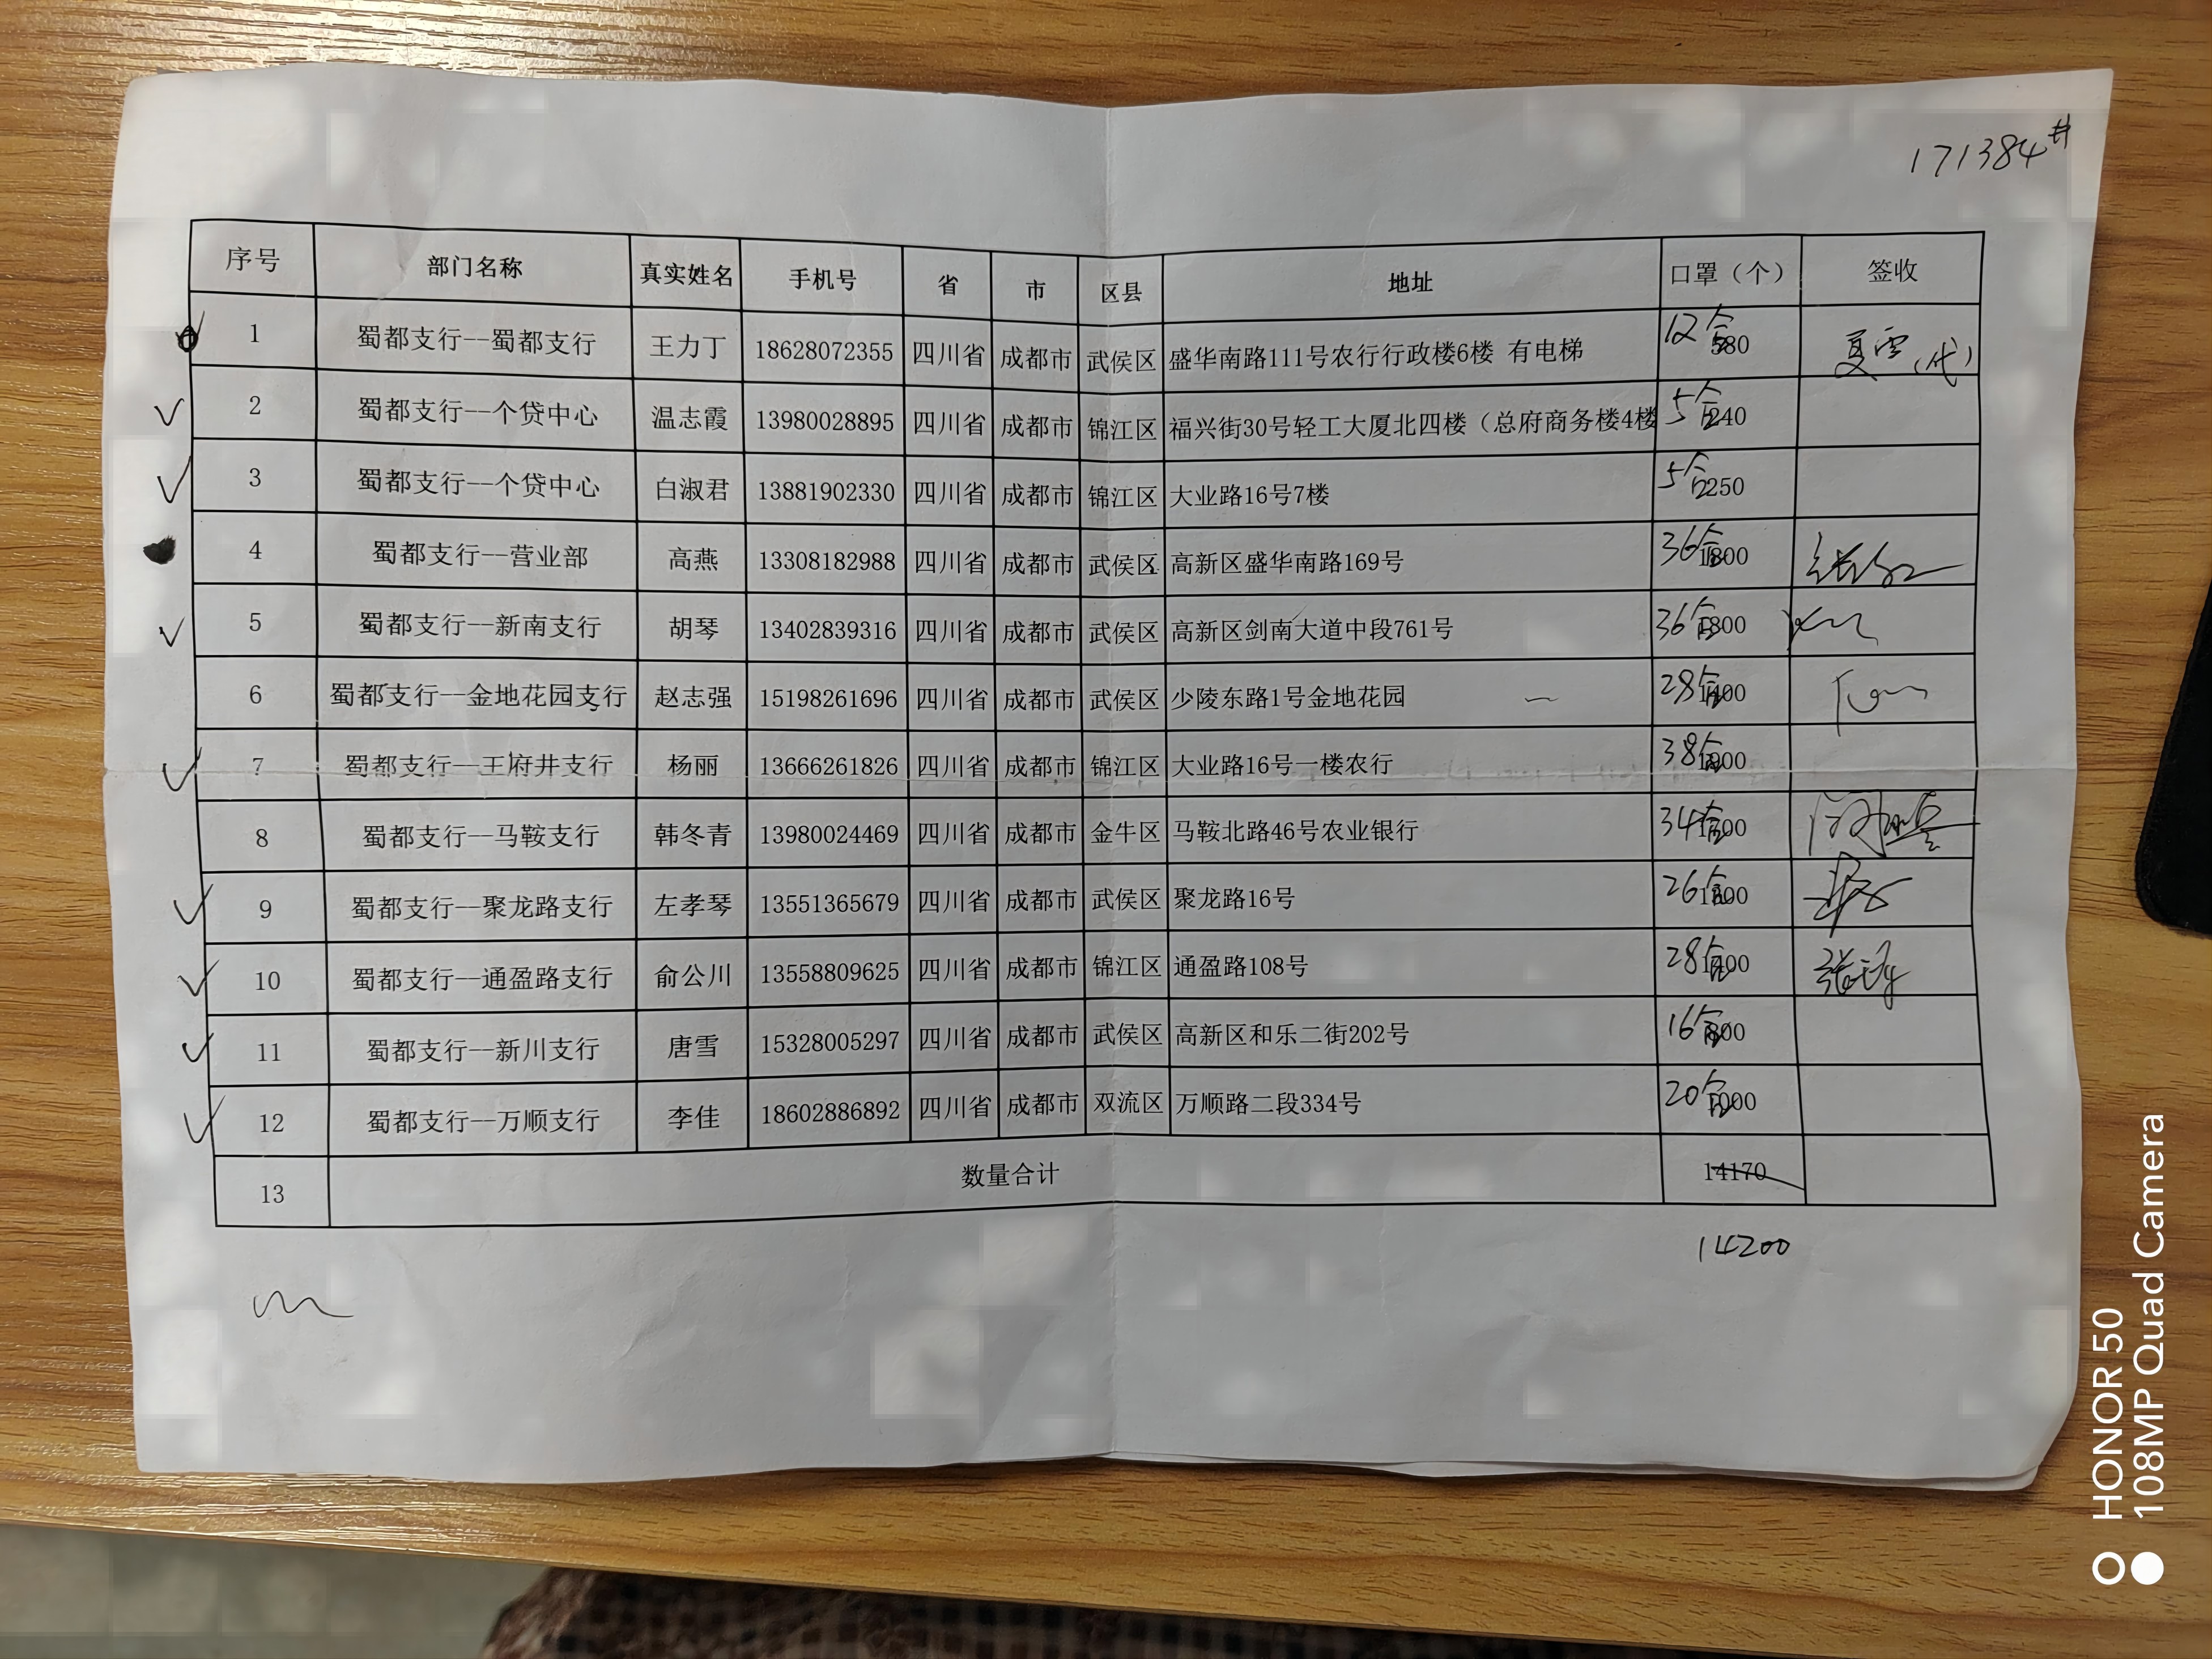 171384#
序号 部门名称 真实姓名 手机号 省 市 区县 地址 口罩（个） 签收
1 蜀都支行--蜀都支行 王力丁 18628072355 四川省 成都市 武侯区 盛华南路111号农行行政楼6楼 有电梯 12合 580 夏雪（代）
2 蜀都支行--个贷中心 温志霞 13980028895 四川省 成都市 锦江区 福兴街30号轻工大厦北四楼（总府商务楼4楼 5合 240
3 蜀都支行--个贷中心 白淑君 13881902330 四川省 成都市 锦江区 大业路16号7楼 5合 250
4 蜀都支行--营业部 高燕 13308182988 四川省 成都市 武侯区 高新区盛华南路169号 36合 1800
5 蜀都支行--新南支行 胡琴 13402839316 四川省 成都市 武侯区 高新区剑南大道中段761号 36合 1800
6 蜀都支行--金地花园支行 赵志强 15198261696 四川省 成都市 武侯区 少陵东路1号金地花园 28合 1400
7 蜀都支行--王府井支行 杨丽 13666261826 四川省 成都市 锦江区 大业路16号一楼农行 38合 1900
8 蜀都支行--马鞍支行 韩冬青 13980024469 四川省 成都市 金牛区 马鞍北路46号农业银行 34合 1700
9 蜀都支行--聚龙路支行 左孝琴 13551365679 四川省 成都市 武侯区 聚龙路16号 26合 1300
10 蜀都支行--通盈路支行 俞公川 13558809625 四川省 成都市 锦江区 通盈路108号 28合 1400
11 蜀都支行--新川支行 唐雪 15328005297 四川省 成都市 武侯区 高新区和乐二街202号 16合 800
12 蜀都支行--万顺支行 李佳 18602886892 四川省 成都市 双流区 万顺路二段334号 20合 1000
13 数量合计 14170
14200
HONOR 50
108MP Quad Camera